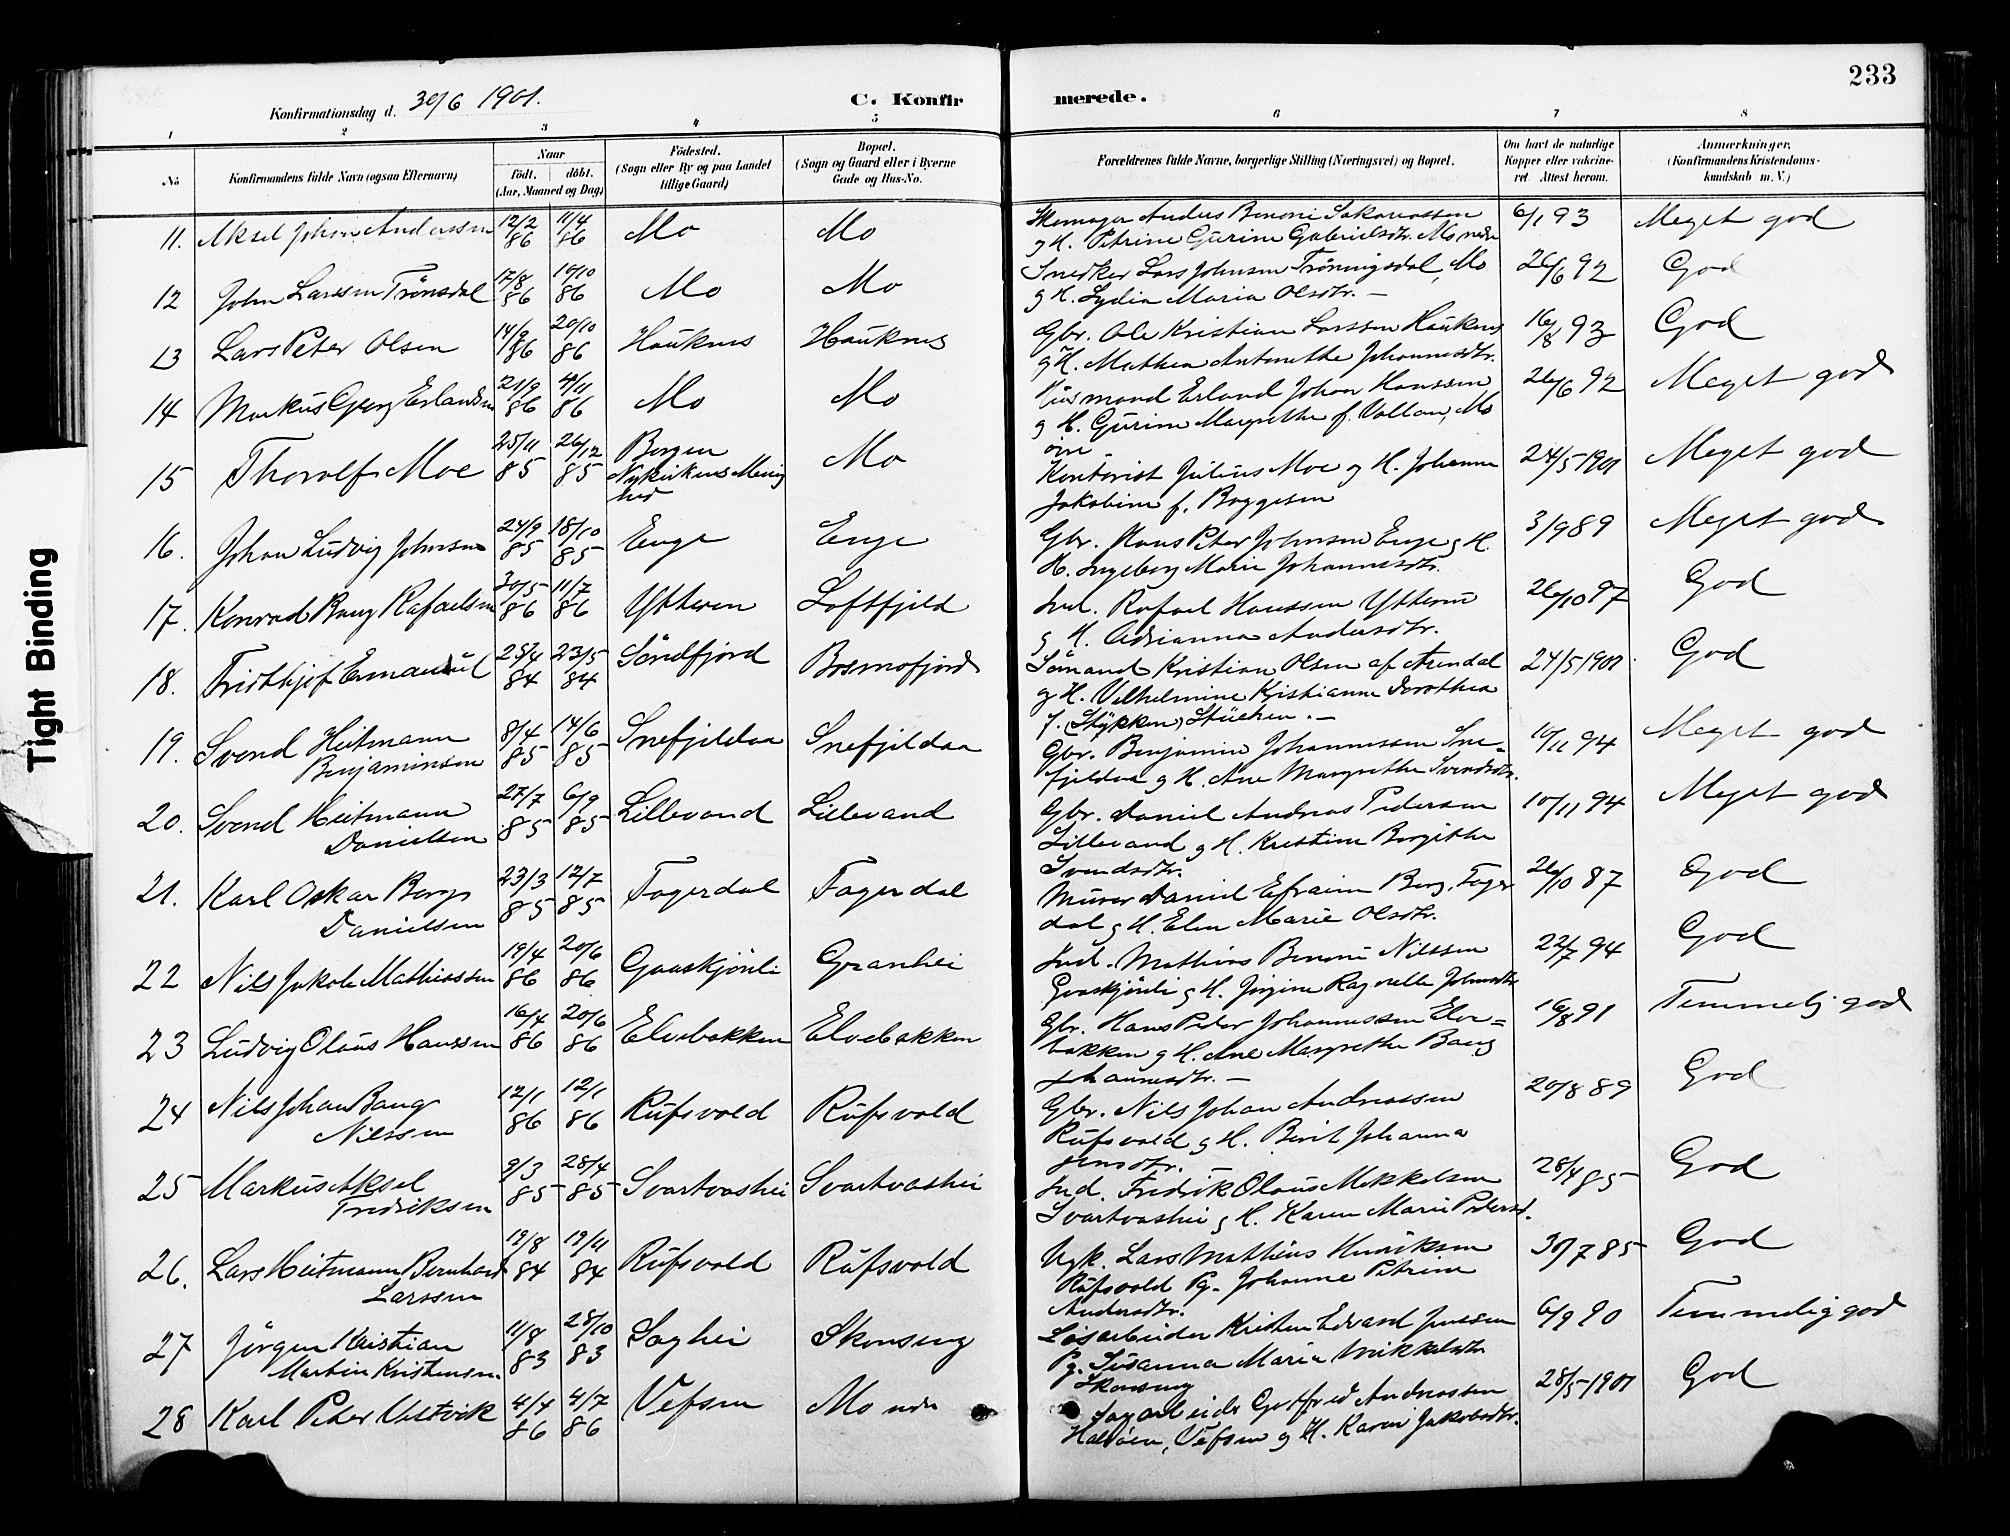 Tight Binding
233
Konfirmationsdag d. 30/6 1901.
C. Konfir merede.
1 2 3 4 5 6 7 8
No
Konfirmandens fulde Navn (ogsaa Efternavn)
Naar
født. døbt.
(Aar, Maaned og Dag)
Fødested.
(Sogn eller By og paa Landet
tillige Gaard)
Bopæl.
(Sogn og Gaard eller i Byerne
Gade og Hus-No.
Forældrenes fulde Navne, borgerlige Stilling (Næringsvei) og Bopæl.
Om havt de naturlige
Kopper eller vakcine-
ret. Attest herom.
Anmærkninger.
(Konfirmandens Kristendoms-
kundskab m. V.)
11. Aksel Johan Anderssen 12/2 86 11/4 86 Mo Mo
Skomager Anders Benoni Sakariassen 6/1 93 Meget god
g H. Petrine Gurine Gabrielsdtr. Mo nedre
12 John Larssen Trönsdal 17/8 86 10/10 86 Mo Mo
Snedker Lars Johnsen Tröningsdal, Mo 26/6 92 God
g H. Lydia Maria Olsdtr. —
13 Lars Peter Olsen 14/9 86 20/10 86 Hauknes Hauknes
Gbr. Ole Kristian Larssen Hauknes 16/8 93 God
g H. Mathea Antonethe Johannesdtr.
14 Markus Georg Erlandsen 21/9 86 4/11 86 Mo Mo
Husmand Erland Johan Hanssen 26/6 92 Meget god
g H. Gurine Margrethe f. Vollan, Mo
övre
15 Thorolf Moe 25/11 85 26/12 85 Bergen
Nykirkens Menig
hed
Mo
Kontorist Julius Moe g H. Johanne 24/5 1901 Meget god
Jakobine f. Boggesen
16. Johan Ludvig Johnsen 24/9 85 18/10 85 Enge Enge
Gbr. Hans Peter Johnsen Enge g H. 3/9 89 Meget god
H. Ingeborg Marie Johannesdtr.
17. Konrad Bang Rafaelsen 30/5 86 11/7 86 Ytteren Loftfjeld
Ind. Rafael Hanssen Ytteren 26/10 97 God
g H. Adrianna Andersdtr.
18. Fridthjof Emanuel 25/4 84 23/5 84 Söndfjord Bosmofjord
Sömand Kristian Olsen af Arendal 24/5 1901. God
g H. Vilhelmine Kristianne Dorothea
f. (Stykken) Stücken. —
19. Svend Heitmann
Benjaminsen
8/4 85 14/6 85 Snefjeldaa Snefjeldaa
Gbr. Benjamin Johannessen Sne- 10/11 94 Meget god
fjeldaa g H. Ane Margrethe Svendsdtr.
20. Svend Heitmann
Danielsen
27/7 85 6/9 85 Lillevand Lillevand
Gbr. Daniel Andreas Pedersen 10/11 94 Meget god
Lillevand g H. Kristine Bergithe
Svendsdtr.
21. Karl Oskar Berg
Danielsen
23/3 85 12/7 85 Fagerdal Fagerdal
Murer Daniel Efraim Berg, Fager 26/10 87 God
dal g H. Elen Marie Olsdtr.
22 Nils Jakob Mathiassen 19/4 86 20/6 86 Graaskjönli Granhei
Ind. Mathias Benoni Nilssen 22/7 94 God
Graaskjönli g H. Jörgine Ragnelle Johnsdtr
23 Ludvig Olaus Hanssen 16/4 86 20/6 86 Elvebakken Elvebakken
Gbr. Hans Peter Johannessen Elve= 16/8 91 Temmelig god
bakken g H. Ane Margrethe Bang
Johannesdtr. —
24 Nils Johan Bang
Nilssen
12/1 86 12/1 86 Rufsvold Rufsvold
Gbr. Nils Johan Andreassen 20/8 89 God
Rufsvold g H. Berit Johanna
Jensdtr.
25 Markus Aksel
Fredriksen
9/3 85 28/4 85 Svartvashei Svartvashei
Ind. Fredrik Olaus Mikkelsen 28/4 85 God
Svartvashei g H. Karen Marie Pedersd.
26. Lars Heitmann Bernhard
Larssen
19/8 84 19/11 84 Rufsvold Rufsvold
Ugk. Lars Mathias Henriksen 30/7 85 God
Rufsvold Pg. Johanne Petrine
Andersdtr.
27 Jörgen Kristian
Martin Kristensen.
11/8 83 28/10 83 Saghei Skonseng
Lösarbeider Kristen Edvard Jenssen 6/9 90 Temmelig god
Pg. Susanna Maria Mikkelsdtr
Skonseng
28 Karl Peter Ulstvik 4/4 86 4/7 86 Vefsen Mo nedre
Sagarbeider Gotfred Andreassen 28/5 1901 God
Halsöen, Vefsen g H. Karen Jakobsdtr.